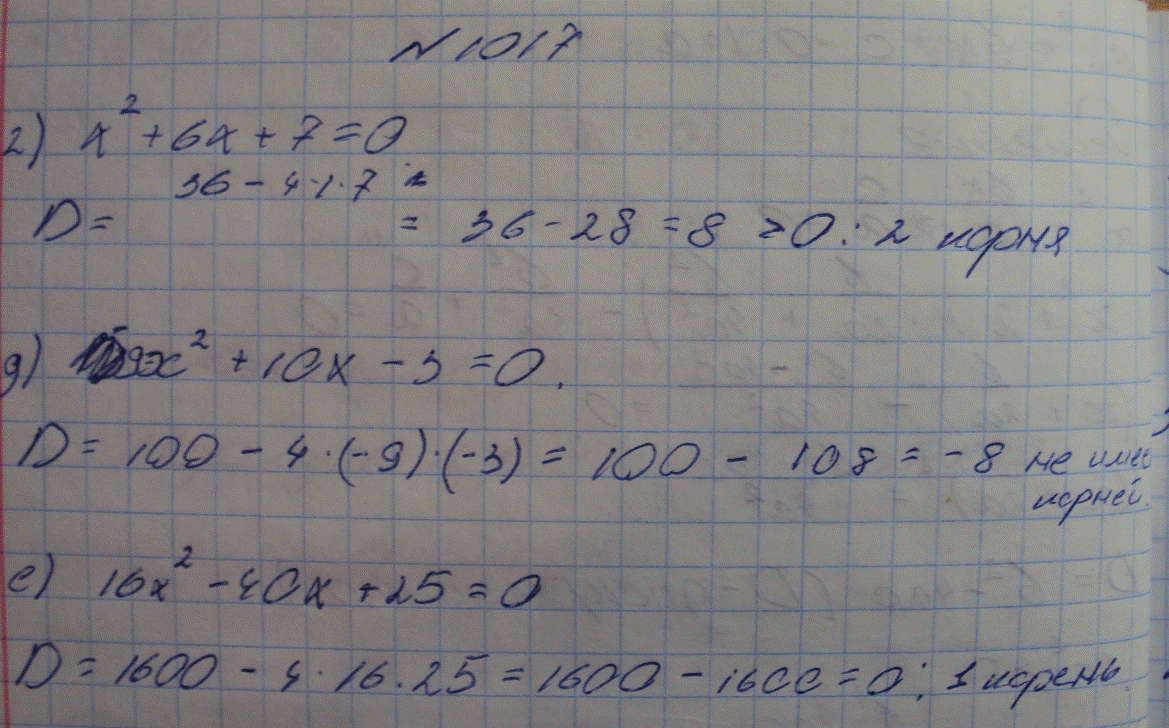 №1017
г) x² + 6x + 7 = 0
36 - 4·1·7
D = = 36 - 28 = 8 > 0 : 2 корня
д) -9x² + 10x - 3 = 0.
D = 100 - 4·(-9)·(-3) = 100 - 108 = -8 не имее
корней.
е) 16x² - 40x + 25 = 0
D = 1600 - 4·16·25 = 1600 - 1600 = 0; 1 корень.